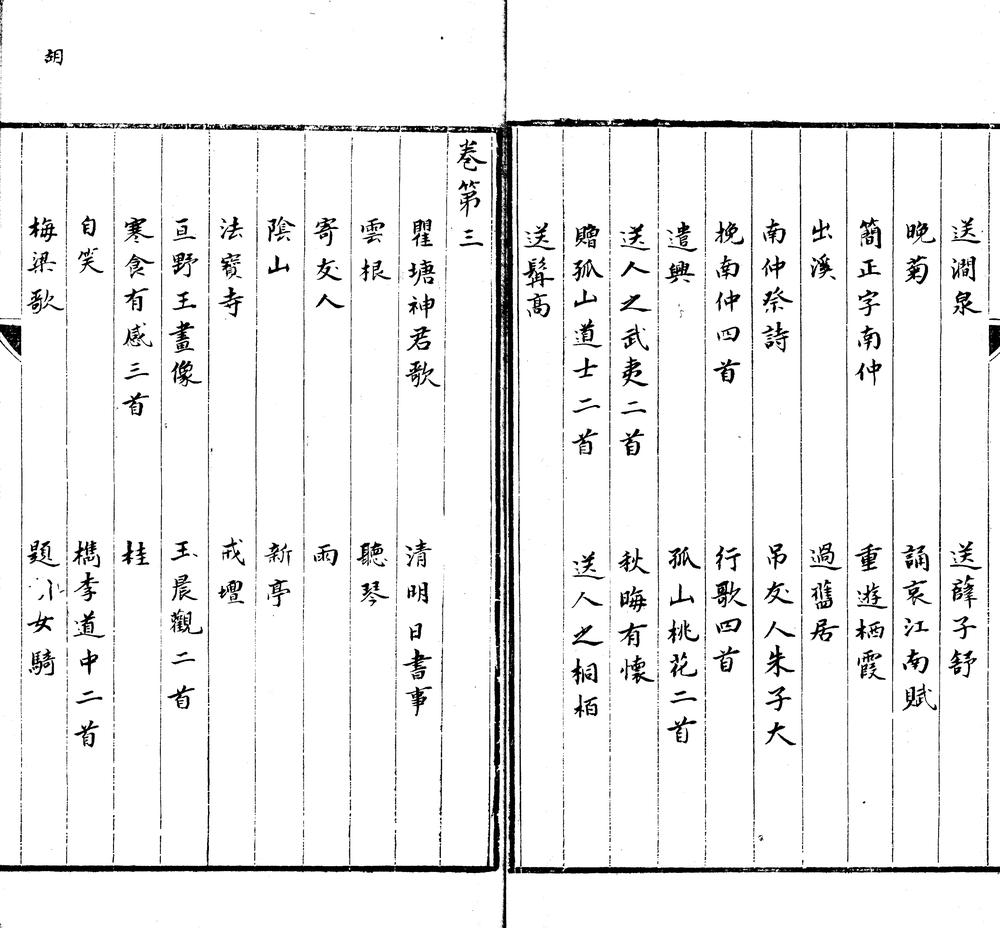 送澗泉　送薛子舒
晚菊　誦哀江南賦
簡正字南仲　重遊栖霞
出溪　過舊居
南仲祭詩　吊友人朱子大
挽南仲四首　行歌四首
遣興　孤山桃花二首
送人之武夷二首　秋晦有懷
贈孤山道士二首　送人之桐栢
送髯高
卷第三
瞿塘神君歌　清明日書事
雲根　聽琴
寄友人　雨
陰山　新亭
法寳寺　戒壇
亘野王畫像　玉晨觀二首
寒食有感三首　桂
自笑　檇李道中二首
梅梁歌　題　女騎
胡